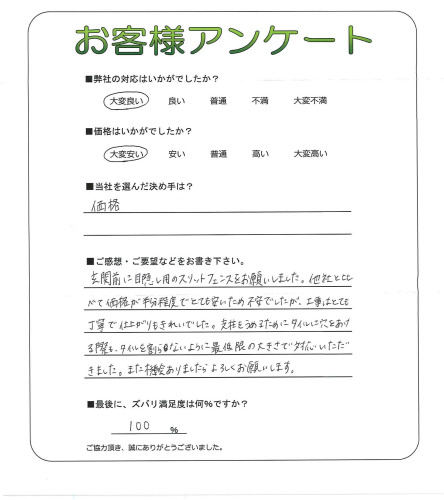 お客様アンケート
■弊社の対応はいかがでしたか?
大変良い 良い 普通 不満 大変不満
■価格はいかがでしたか?
大変安い 安い 普通 高い 大変高い
■当社を選んだ決め手は?
価格
■ご感想・ご要望などをお書き下さい。
玄関前に目隠し用のスリットフェンスをお願いしました。他社とくら
べて価格が半分程度でとても安いため不安でしたが、工事はとても
丁寧で仕上がりもきれいでした。支柱をうめるためにタイルに穴をあけ
る際も、タイルを割らないように最低限の大きさで対応いただ
きました。また機会ありましたらよろしくお願いします。
■最後に、ズバリ満足度は何%ですか?
100 %
ご協力頂き、誠にありがとうございました。